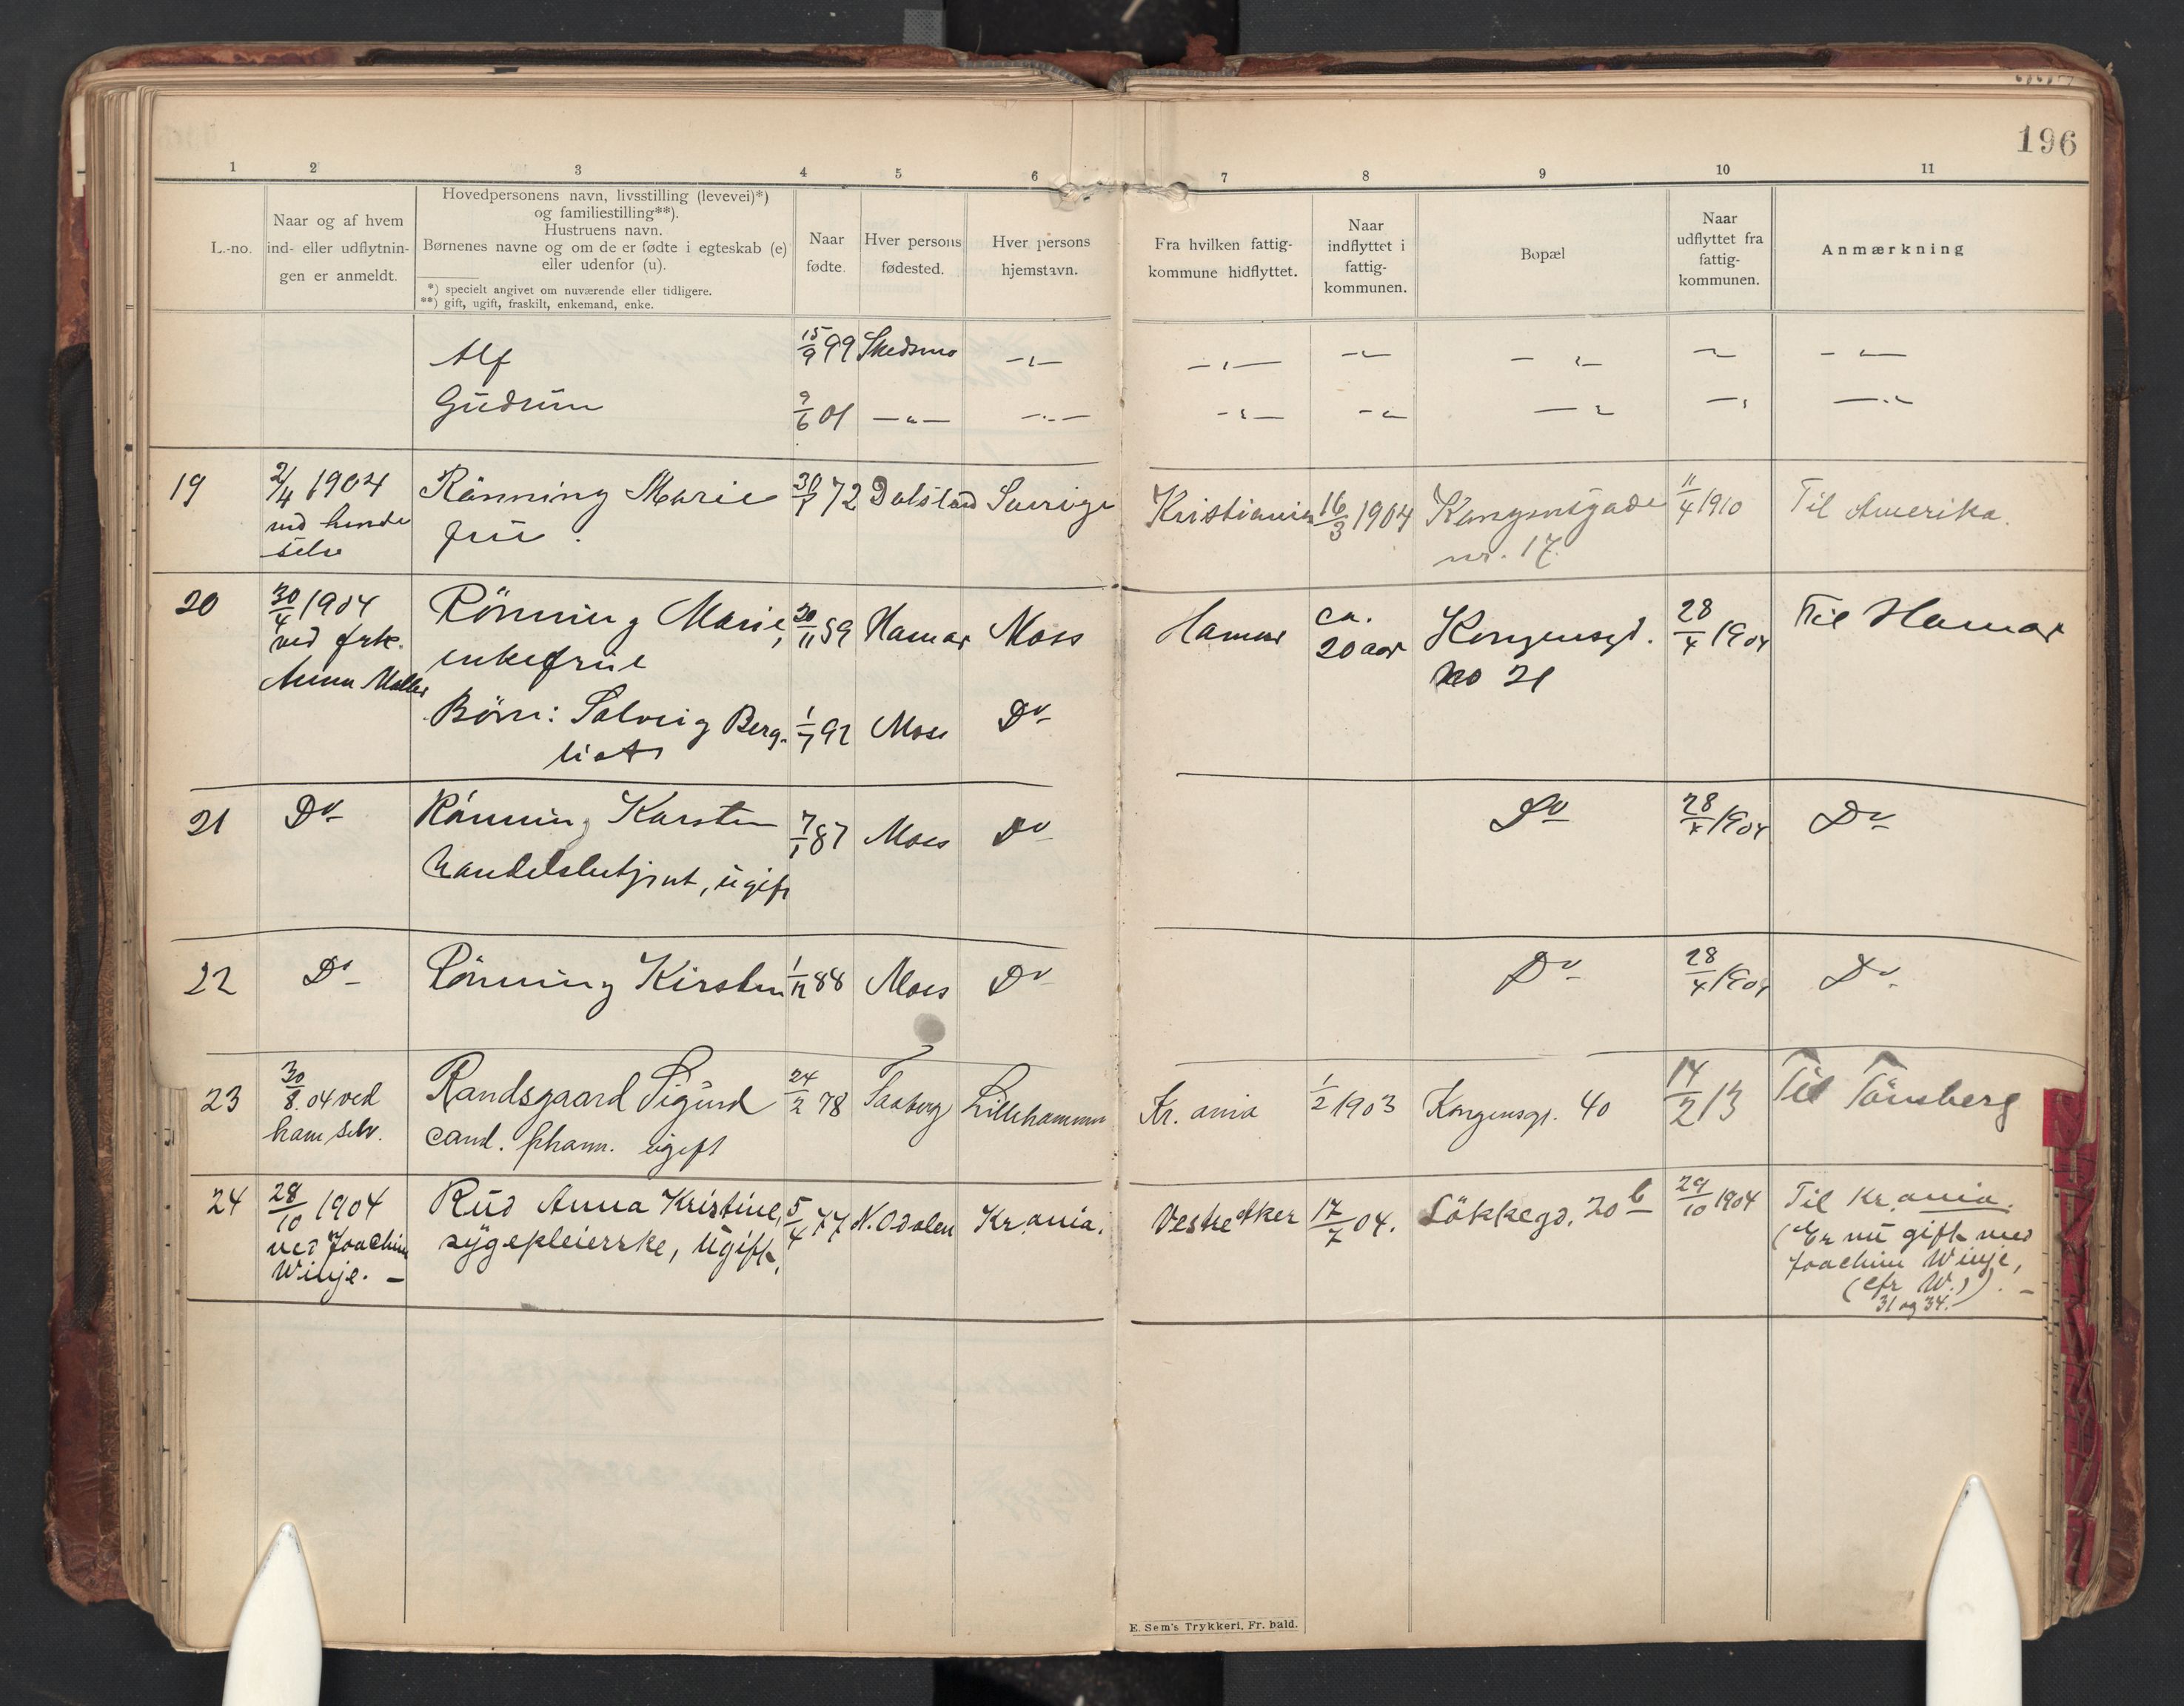 196
1 2 3 4 5 6 7 8 9 10 11
L.-no.
Naar og af hvem
ind- eller udflytnin-
gen er anmeldt.
Hovedpersonens navn, livsstilling (levevei)*)
og familiestilling**).
Hustruens navn.
Børnenes navne og om de er fødte i egteskab (e)
eller udenfor (u).
*) specielt angivet om nuværende eller tidligere.
**) gift, ugift, fraskilt, enkemand, enke.
Naar
fødte.
Hver persons
fødested.
Hver persons
hjemstavn.
Fra hvilken fattig-
kommune hidflyttet.
Naar
indflyttet i
fattig-
kommunen.
Bopæl
Naar
udflyttet fra
fattig-
kommunen.
Anmærkning
Alf 15/9 99 Skedsmo -"- -"- -"- -"- -"- -"-
Gudrun 9/6 01 -"- -"- -"- -"- -"- -"- -"-
19 2/4 1904 Rönning Marie 30/7 72 Dalsland Sverige Kristiania 16/3 1904 Kongensgade 11/4 1910 Til Amerika.
ved hende frue. nr. 17.
selv
20 30/4 1904 Rönning Marie, 20/11 59 Hamar Moss Hamar ca. Kongensgd. 28/4 1904 Til Hamar
ved frk. enkefrue 20 aar no 21
Anna Møller
Börn: Solveig Berg- 1/7 92 Moss Do
liot
21 Do Rönning Karsten 7/1 87 Moss Do Do 28/4 1904 Do
handelsbetjent, ugift
22 Do Rönning Kirsten 1/12 88 Moss Do Do 28/4 1904 Do
23 30/8.04 ved Randsgaard Sigurd 24/2 78 Faaberg Lillehammer Kr.ania 1/2 1903 Kongensgt. 40 14/2 13 Til Tönsberg
ham selv. cand. pharm. ugift
24 28/10 1904 Rud Anna Kristine, 5/4 77 N. Odalen Kr.ania. Vestre Aker 17/7 04. Lökkegd. 20 b 29/10 1904 Til Kr.ania.
ved Joachim sygepleierske, ugift. (Er nu gift med
Winje. - Joachim Winje,
(cfr W.)). -
31 og 34. -
E. Sem's Trykkeri, Fr. hald.